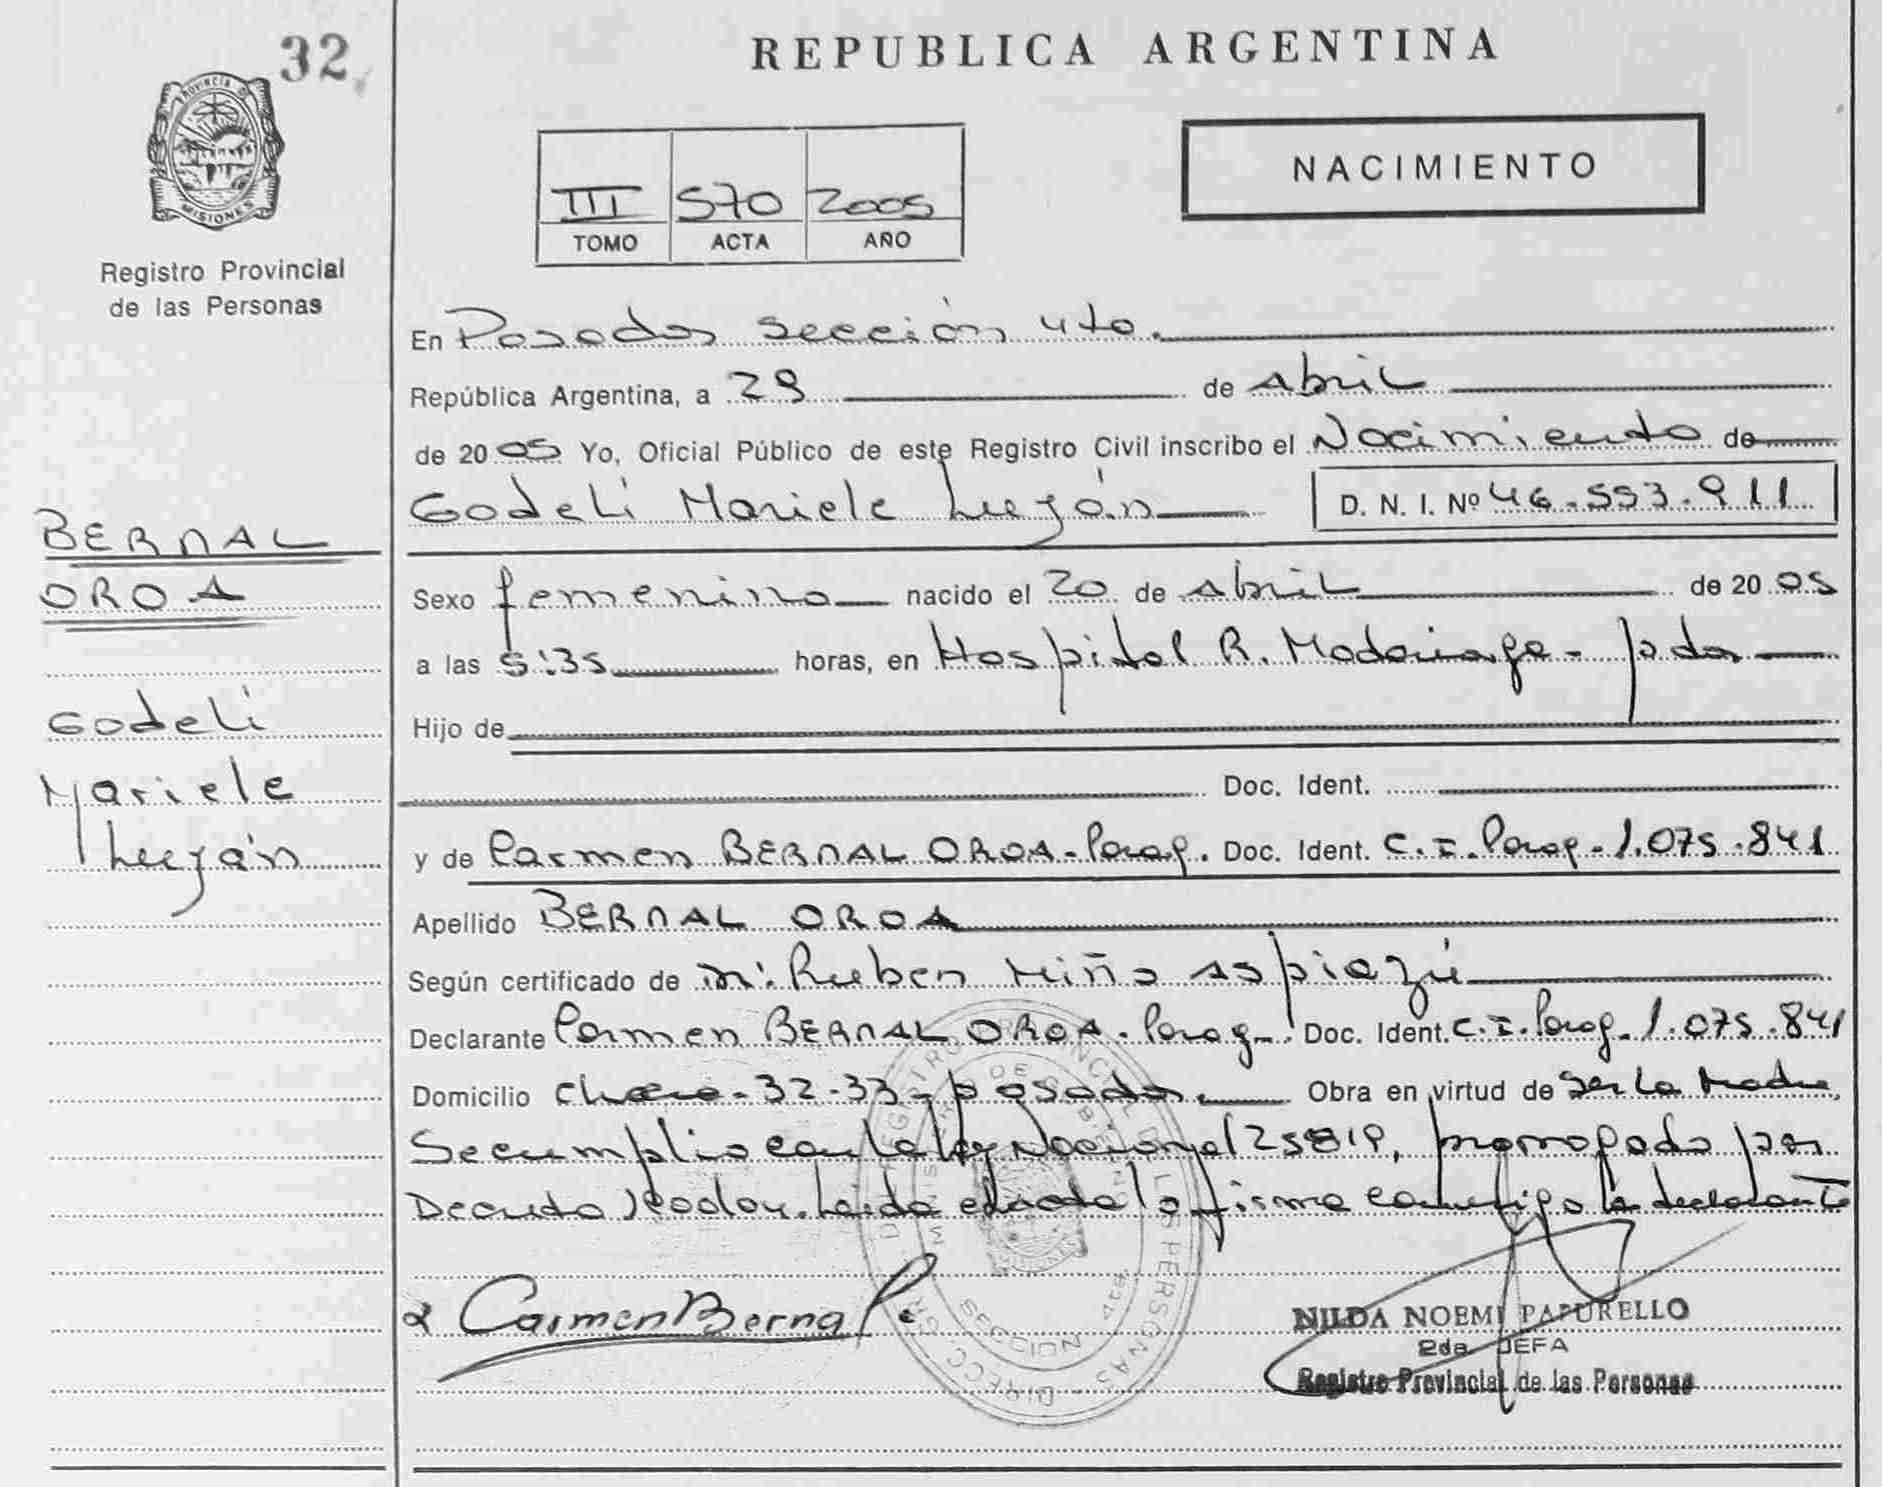 32
PROVINCIA DE
MISIONES
Registro Provincial
de las Personas
BERNAL
OROA
Godeli
Mariele
Luján
REPUBLICA ARGENTINA
NACIMIENTO
III 570 2005
TOMO ACTA AÑO
En Posadas sección 4ta.
República Argentina, a 29 de Abril
de 2005 Yo, Oficial Público de este Registro Civil inscribo el Nacimiento de
Godeli Mariele Luján D. N. I. Nº 46.553.911
Sexo femenino nacido el 20 de Abril de 2005
a las 5:35 horas, en Hospital R. Madariaga - pdas
Hijo de
Doc. Ident.
y de Carmen BERNAL OROA - Parag. Doc. Ident. C.I. Parag. 1.075.841
Apellido BERNAL OROA
Según certificado de Ruben Miño Aspiazú
Declarante Carmen BERNAL OROA - Parag. Doc. Ident. C.I. Parag. 1.075.841
Domicilio 32-33 - posadas. Obra en virtud de ser la madre,
Se cumplio con la ley Nacional 25819, por
Decreto Leida el acta la firma conmigo la declarante
Carmen Bernal
NILDA NOEMI PAPURELLO
2da. JEFA
Registro Provincial de las Personas